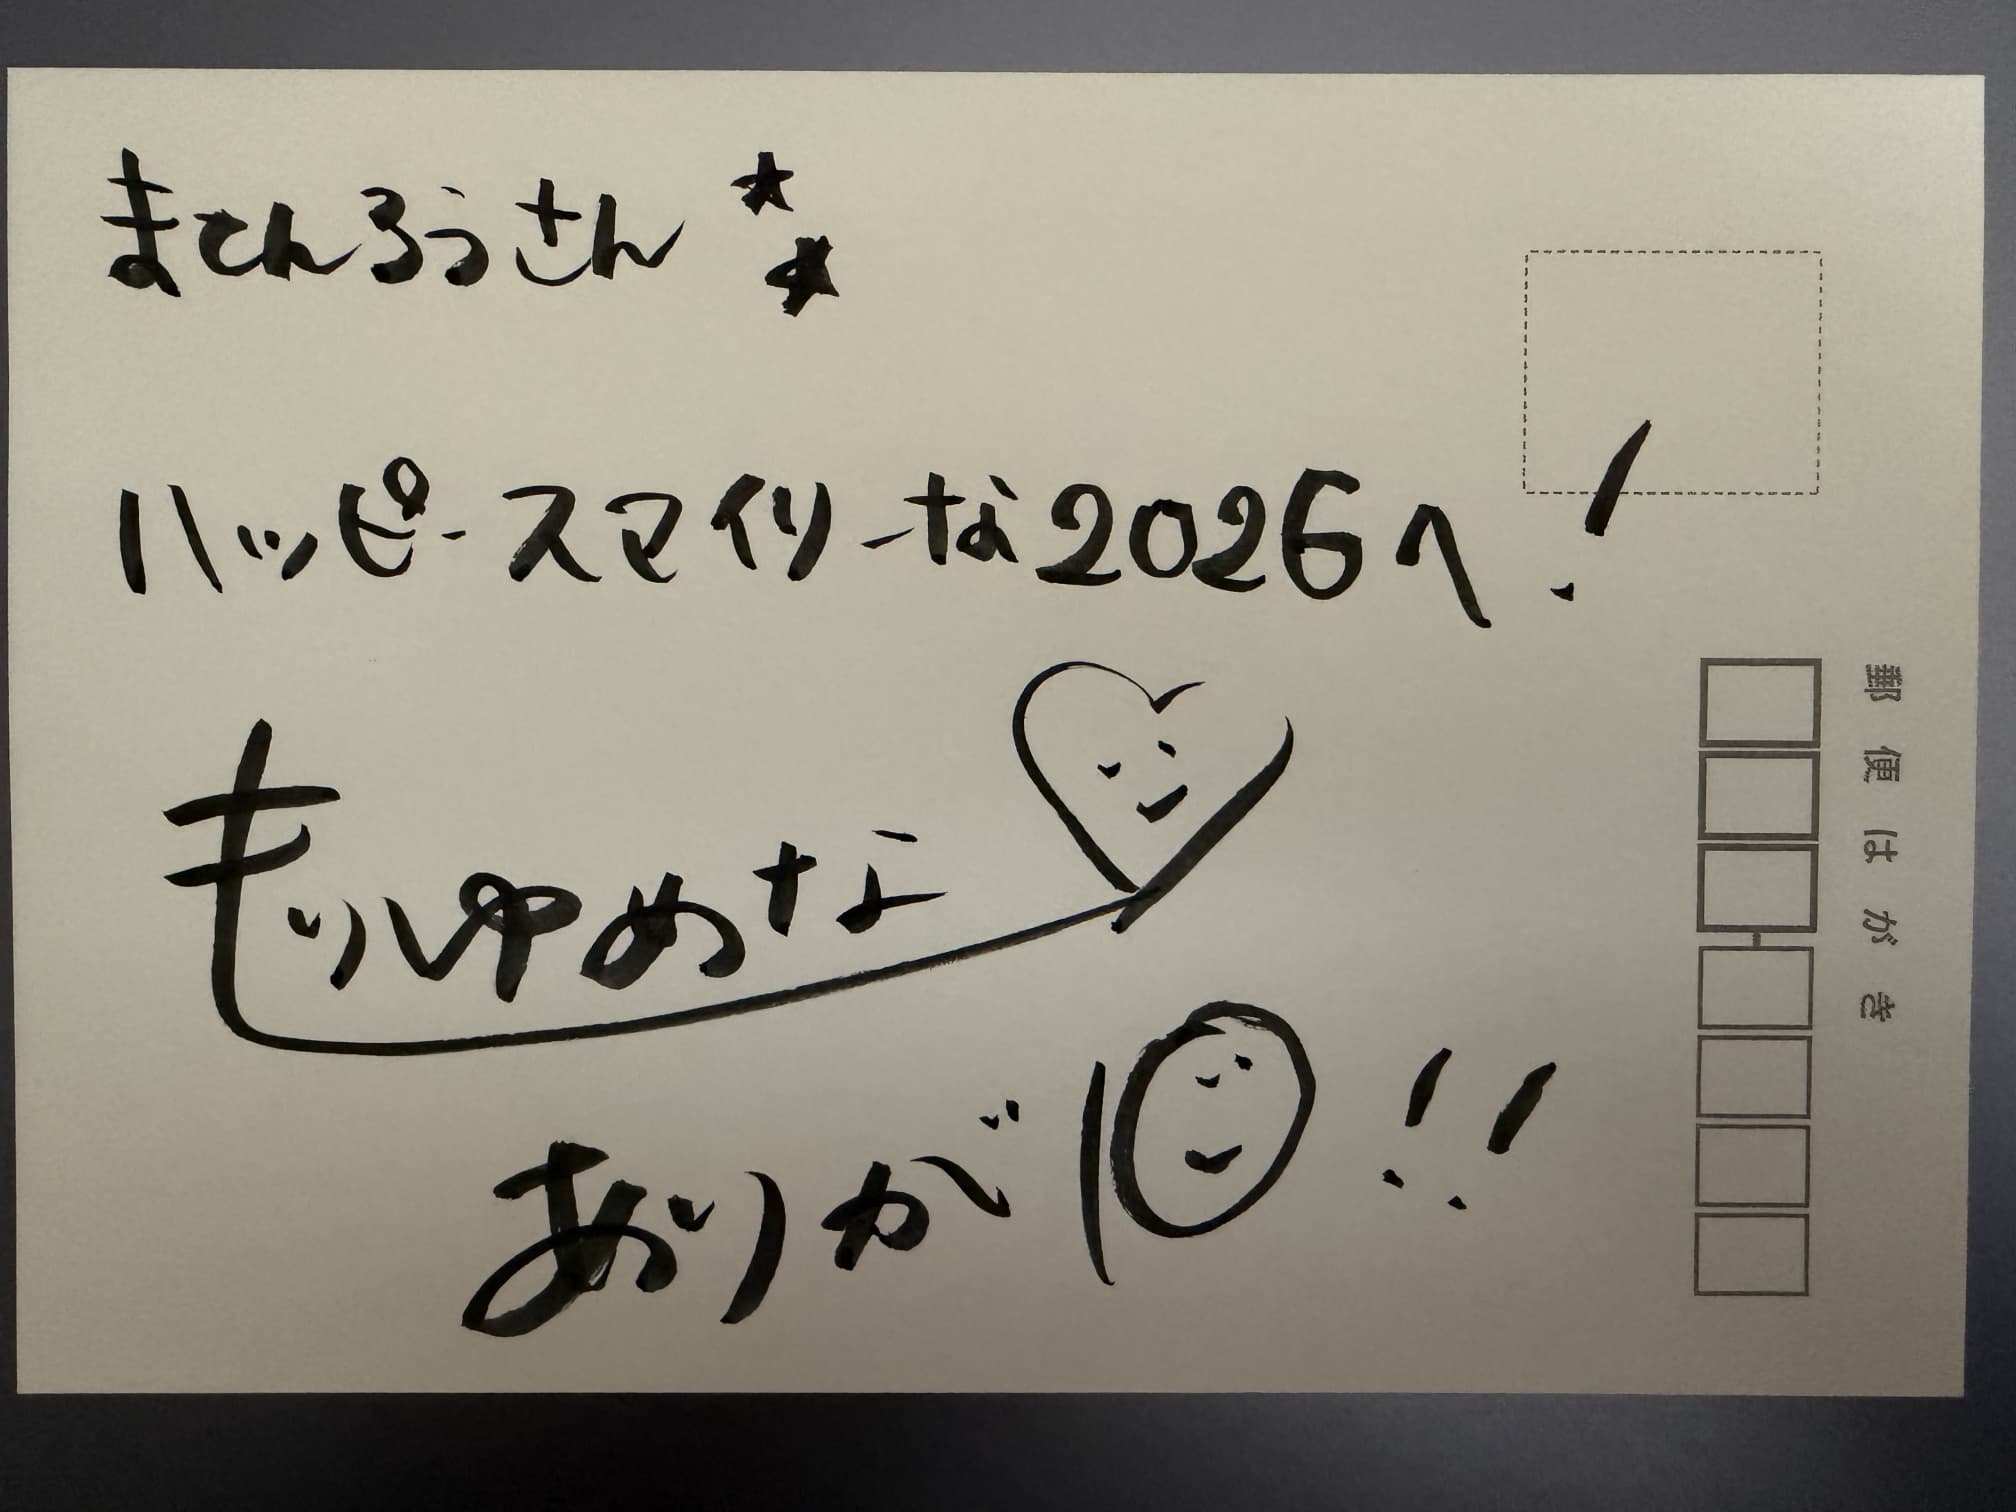 まてんろうさん
ハッピースマイリーな2026へ!
もりゆめな
ありが10!!
郵便はがき